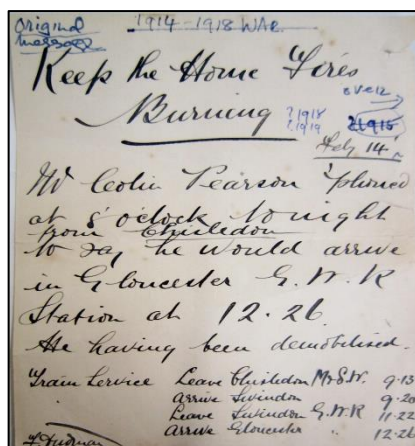 Original
message
1914-1918 WAR
Keep the Home Fires
Burning
over
?1918
?1919
?1915
Feby 14
Mr Colin Pearson 'phoned
at 8 o'clock tonight
from Chisledon
to say he would arrive
in Gloucester G.W.R
Station at 12.26
He having been demobilised.
Train Service Leave Chisledon M.&S.W. 9.13
Arrive Swindon 9.20
Leave Swindon G.W.R 11.22
Arrive Gloucester " 12.26